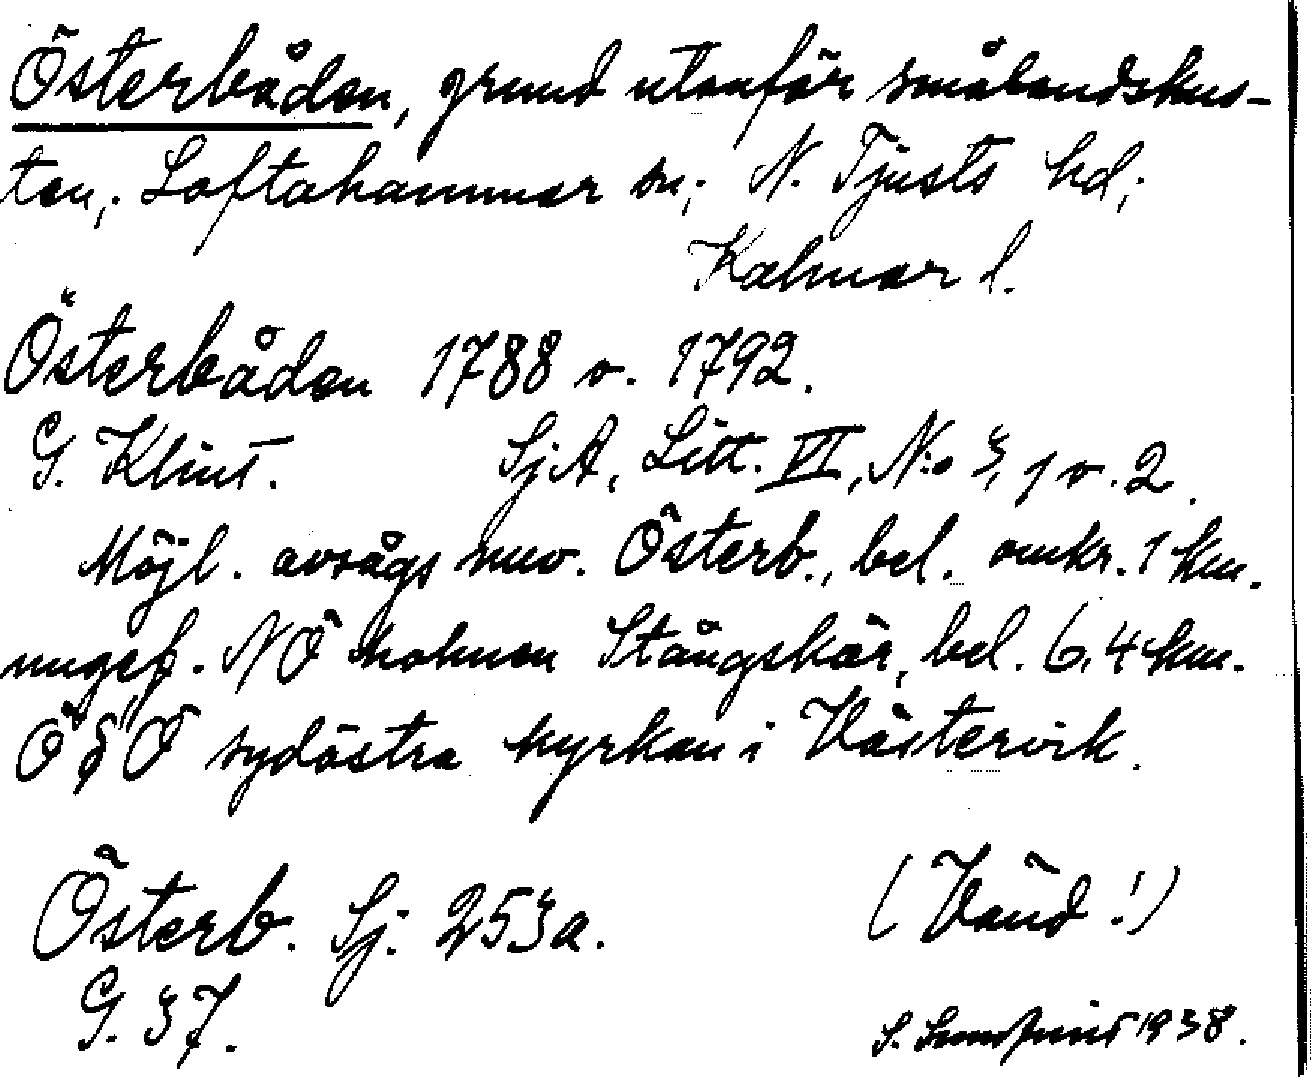 Österbåden, grund utanför smålandskus-
ten; Loftahammar sn; N. Tjusts hd;
Kalmar l.
Österbåden 1788 o. 1792.
G. Klint. SjA, Litt. VI, N:o 3, 1 o. 2.
Möjl. avsågs nuv. Österb., bel. omkr. 1 km.
ungef. NÖ holmen Stångskär, bel. 6,4 km.
Ö§Ö sydöstra kyrkan i Västervik.
Österb. Sj: 253a. (Vänd!)
G. 37. 1938.